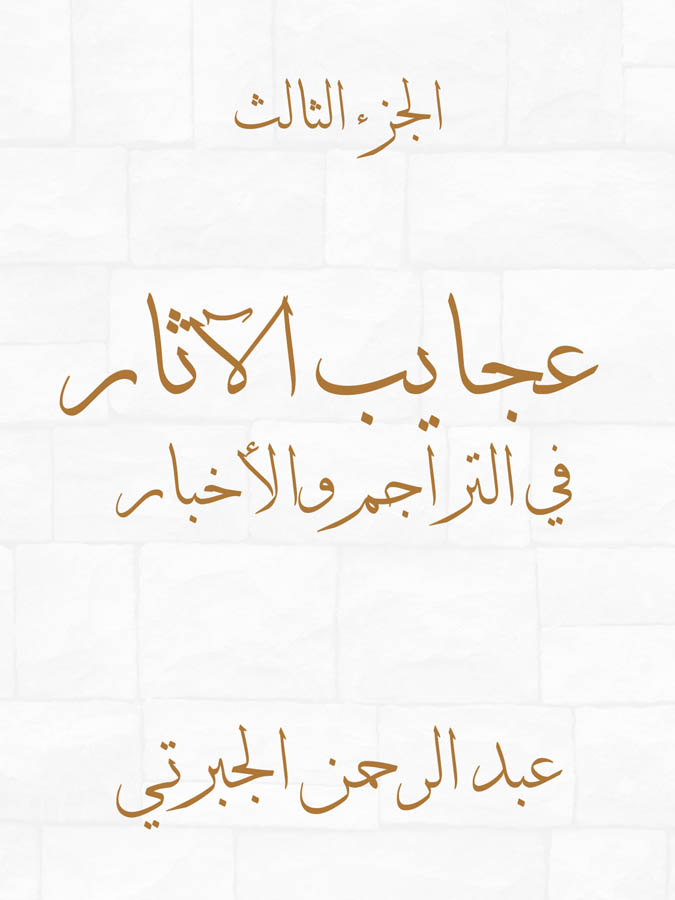 الجزء الثالث
عجايب الآثار
في التراجم والأخبار
عبد الرحمن الجبرتي